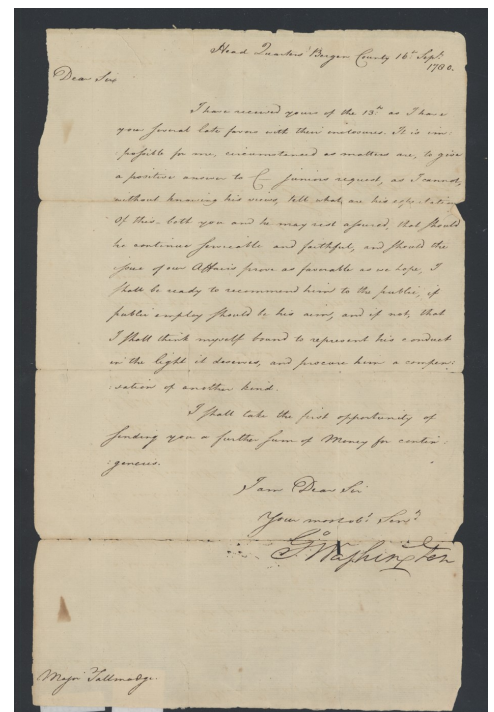 Head Quarters Bergen County 16th Sepr.
1780.
Dear Sir
I have received yours of the 13th as I have
your several late favors with their inclosures. It is im-
possible for me, circumstanced as matters are, to give
a positive answer to C— juniors request, as I cannot,
without knowing his views, tell what are his expectations
Of this both you and he may rest assured, that should
he continue serviceable and faithful, and should the
issue of our Affairs prove as favorable as we hope, I
shall be ready to recommend him to the public, if
public employ should be his aim, and if not, that
I shall think myself bound to represent his conduct
in the light it deserves, and procure him a compen-
:sation of another kind.
I shall take the first opportunity of
sending you a further sum of Money for contin-
:gencies.
I am Dear Sir
Your most obt. Servt.
Go. Washington
Major Tallmadge.